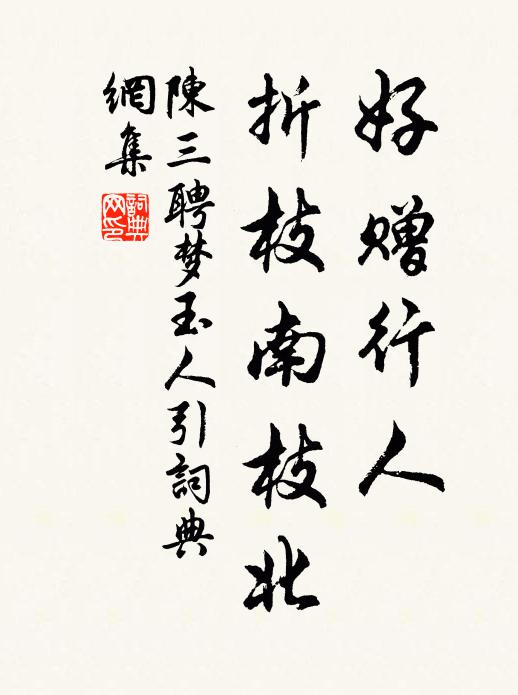 好赠行人
折枝南枝北
陳三聘梦玉人引詞典
網集
詞典
网印